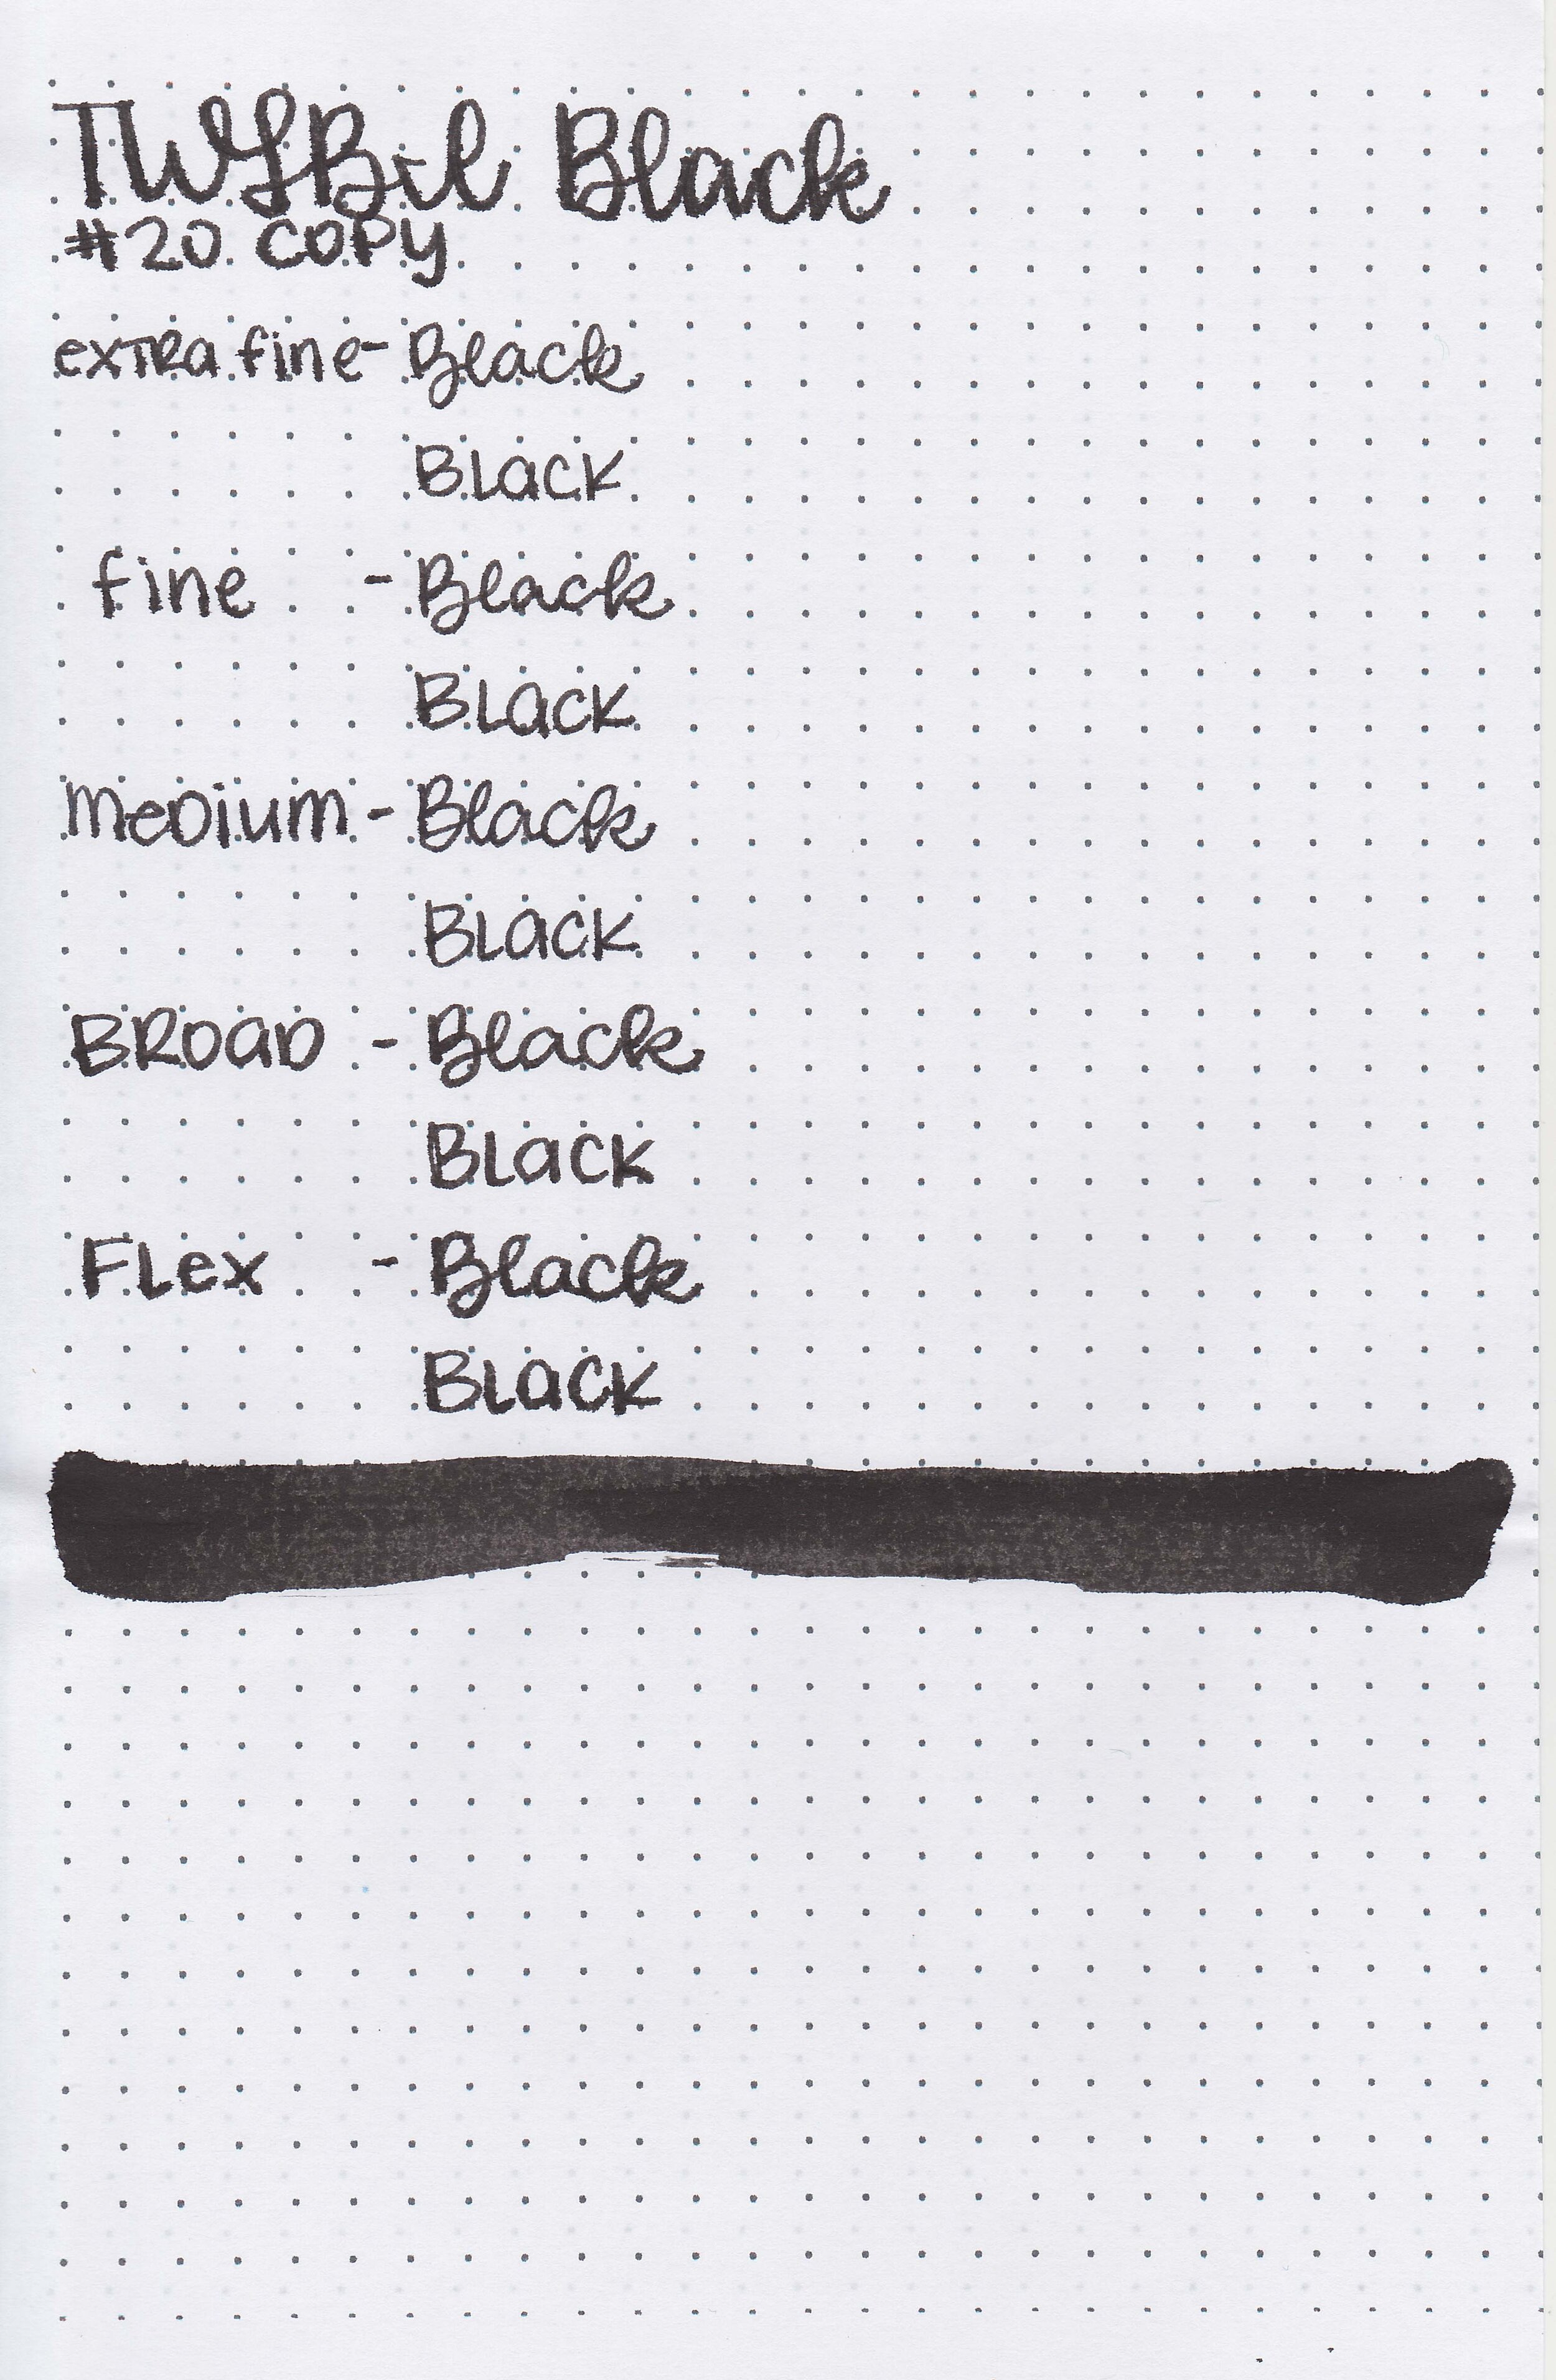 TWSBI Black
#20 COPY
extra fine - Black
Black
fine - Black
Black
Medium - Black
Black
Broad - Black
Black
Flex - Black
Black